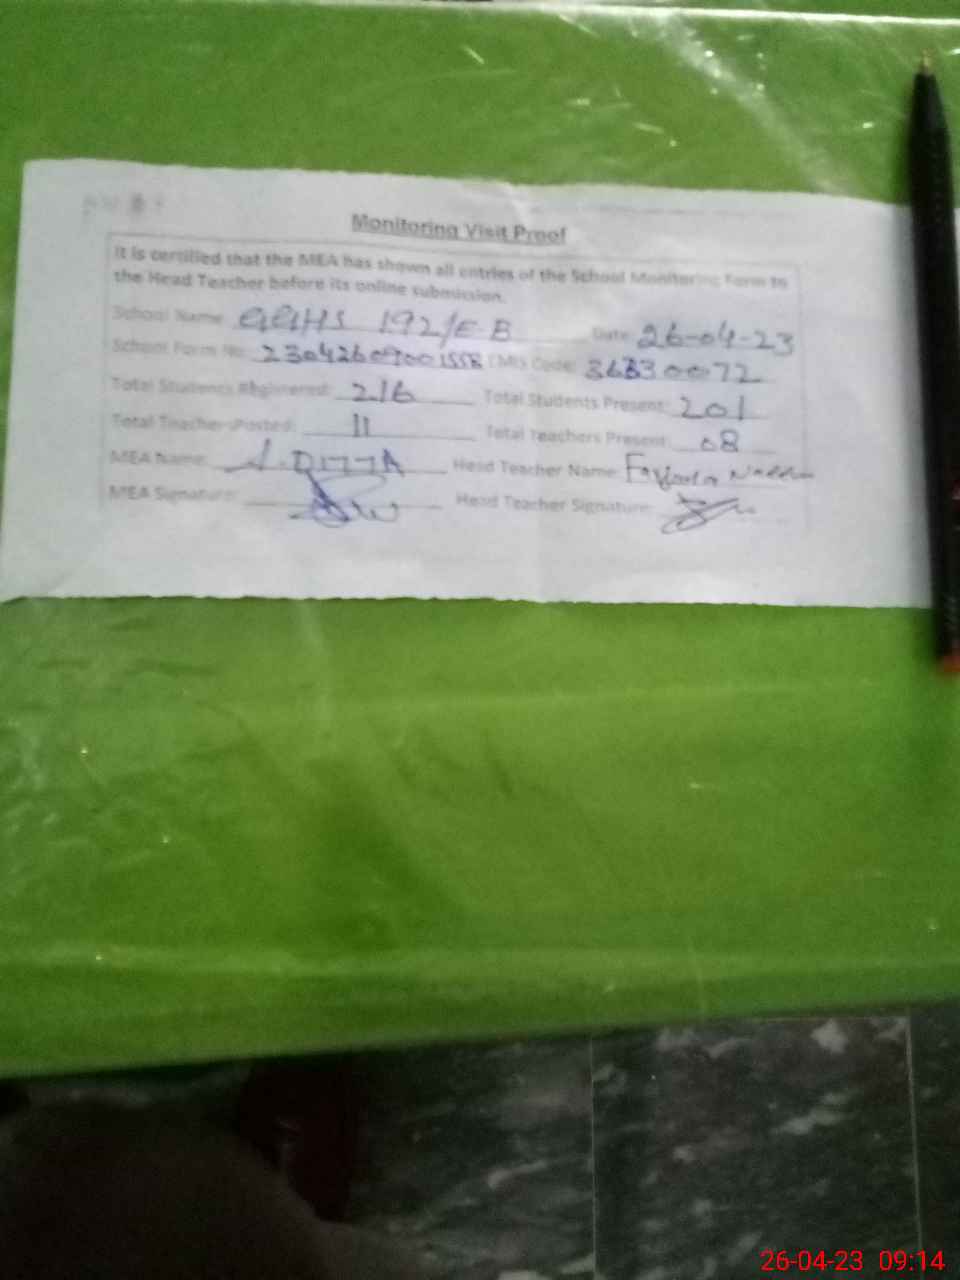 Monitoring Visit Proof
It is certified that the MEA has shown all entries of the School Monitoring Form to
the Head Teacher before its online submission.
School Name: GGHS 192/E-B Date: 26-04-23
School Form No: EMIS Code:
Total Students Registered: 216 Total Students Present: 201
Total Teachers Posted: 11 Total Teachers Present: 08
MEA Name: A. DITTA Head Teacher Name:
MEA Signature: Head Teacher Signature:
26-04-23 09:14